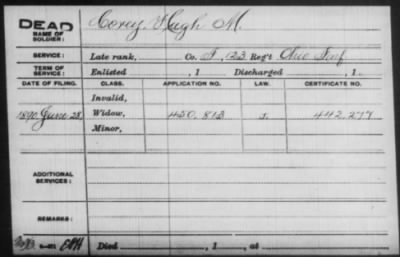 DEAD
NAME OF SOLDIER: Corey, Hugh M.
SERVICE: Late rank, Co. F, 123 Reg't Ohio Inf
TERM OF SERVICE: Enlisted , 1 Discharged , 1 .
DATE OF FILING. CLASS. APPLICATION NO. LAW. CERTIFICATE NO.
Invalid,
1890 June 28 Widow, 450.813 442.277
Minor,
ADDITIONAL SERVICES:
REMARKS:
Died , 1 , at